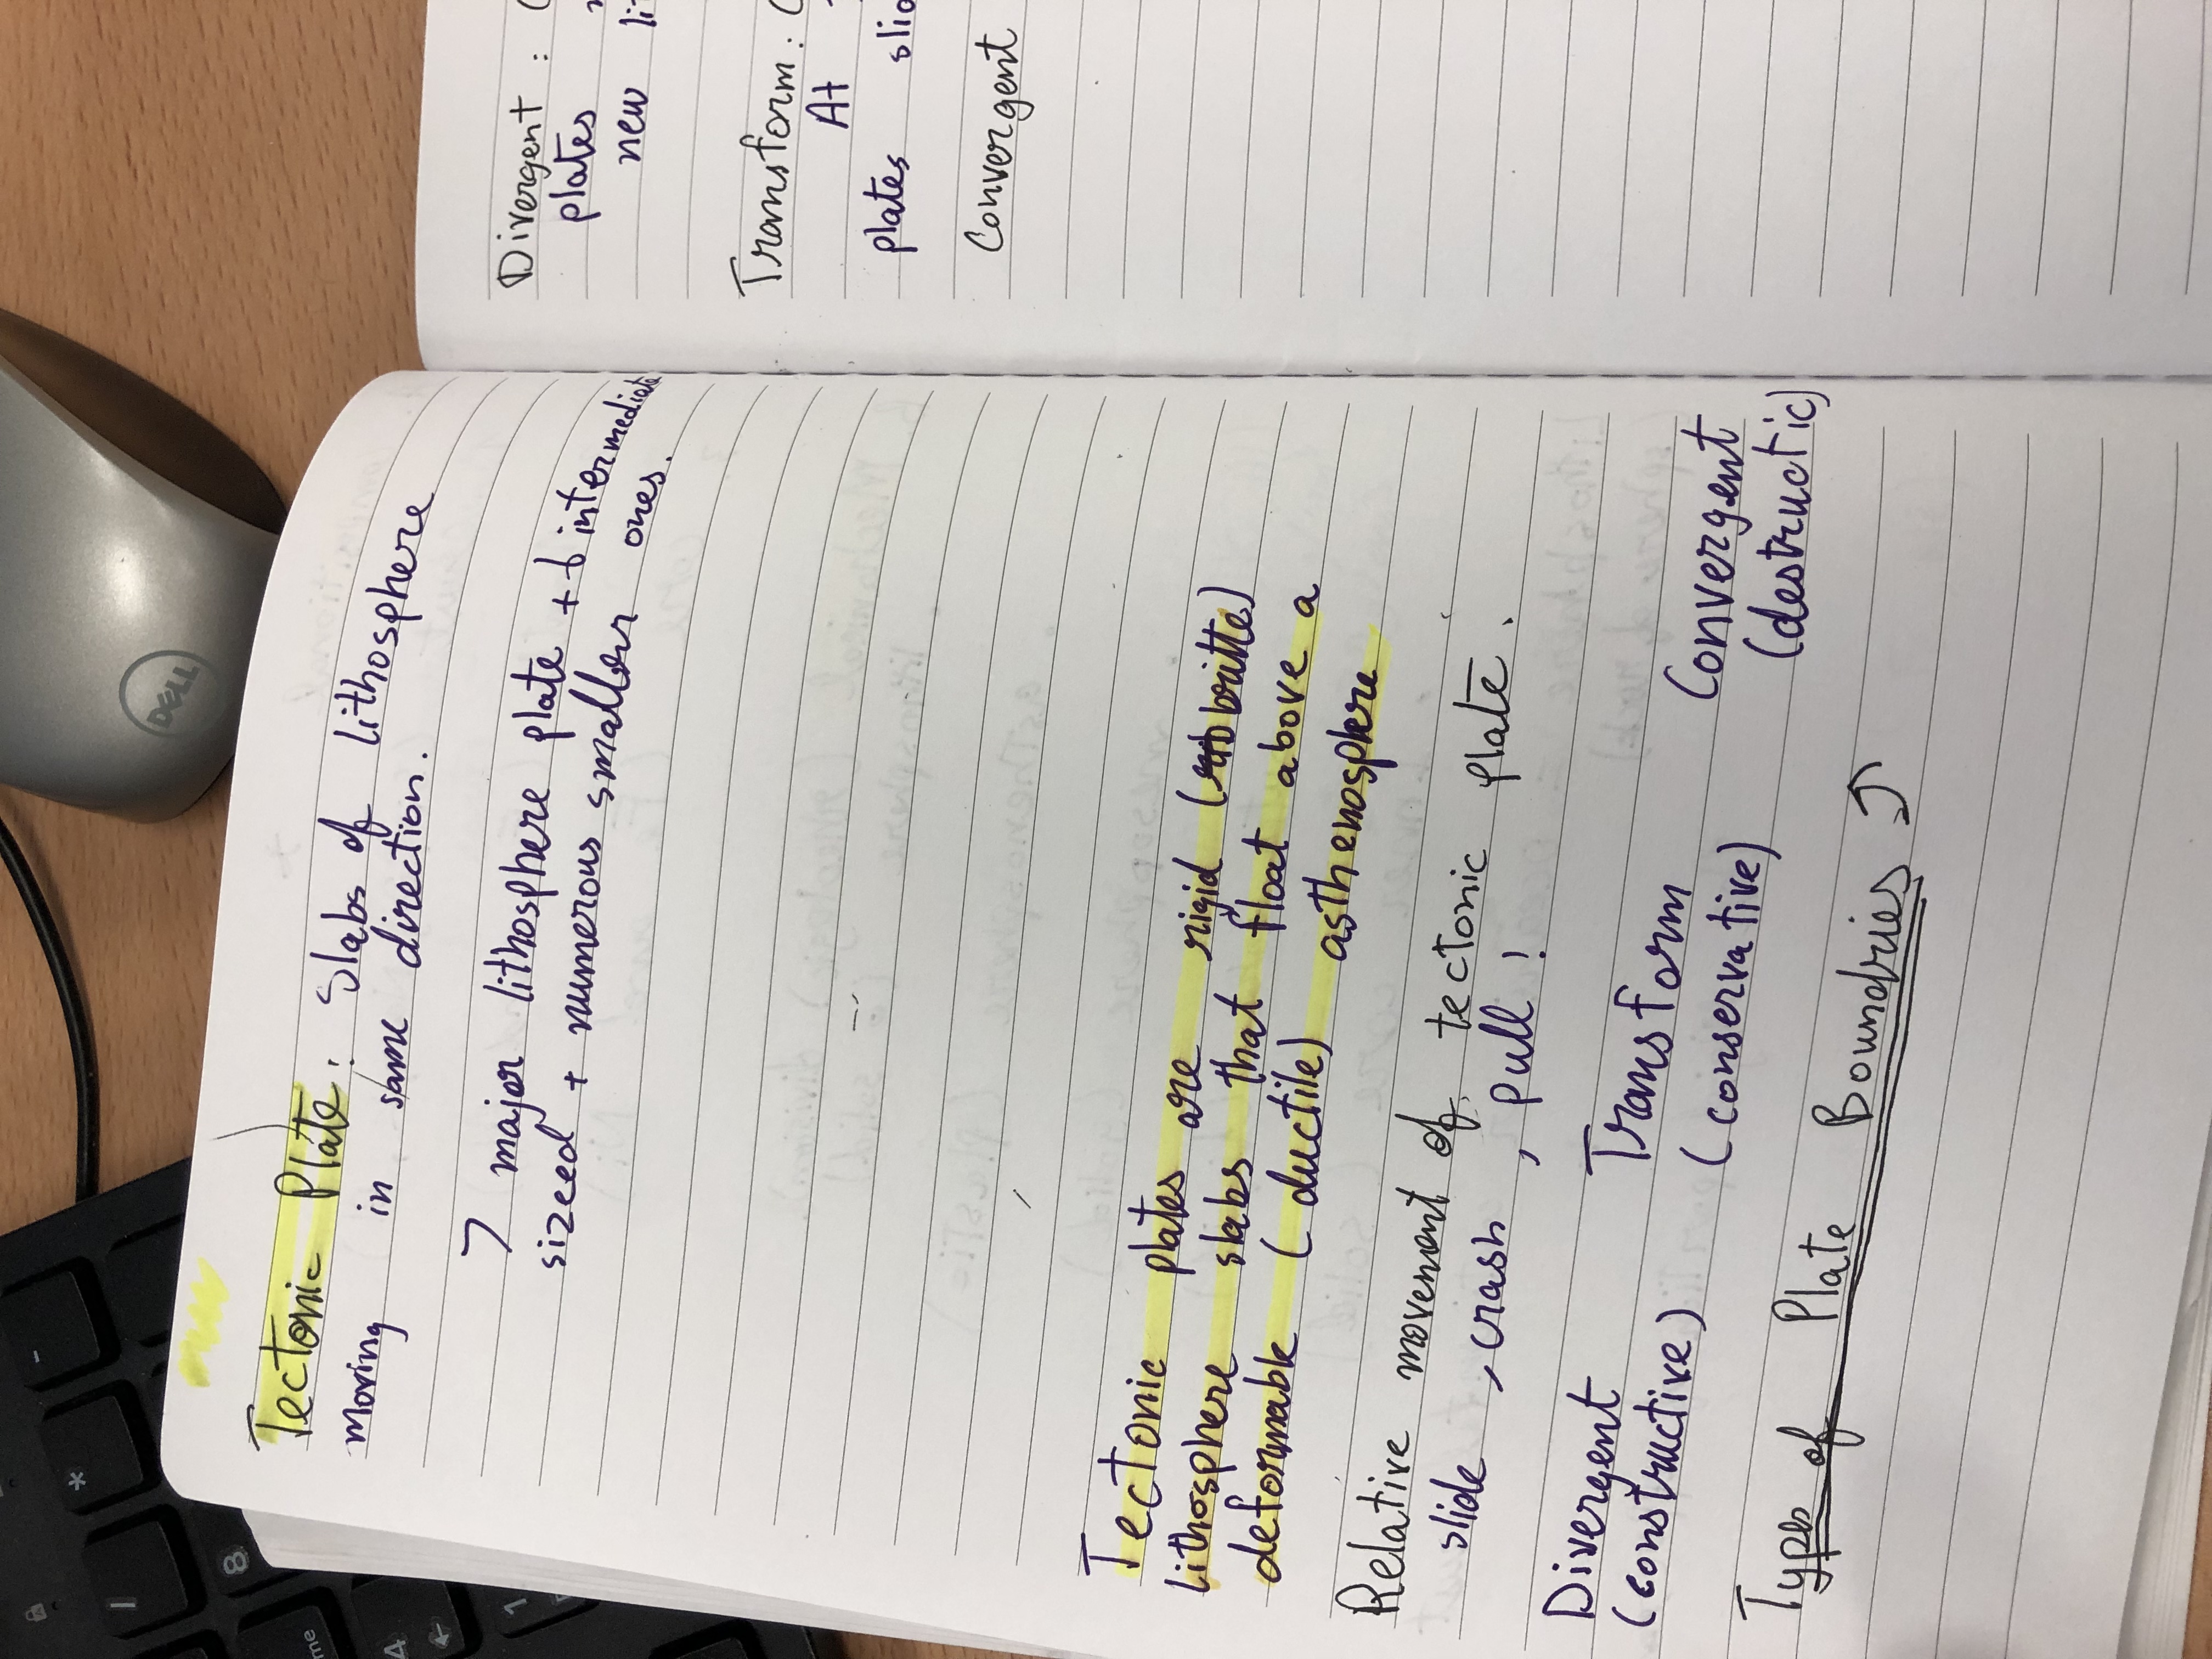 Tectonic Plate: Slabs of lithosphere
moving in same direction.
7 major lithosphere plate + 6 intermediate
sized + numerous smaller ones.
Tectonic plates are rigid
lithosphere slabs that float above a
deformable (ductile) asthenosphere
Relative movement of tectonic plate.
slide, crash, pull!
Divergent Transform Convergent
(constructive) (conservative) (destructic)
Types of Plate Boundries
Divergent : (
plates
new li
Transform: (
At
plates slid
Convergent
DELL
-
*
8
/
me
4
1